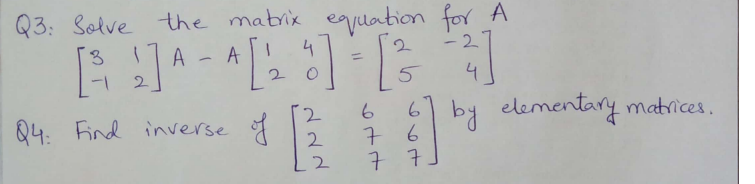 Q3: Solve the matrix equation for A
[3 1; -1 2] A - A [1 4; 2 0] = [2 -2; 5 4]
Q4: Find inverse of [2 6 6; 2 7 6; 2 7 7] by elementary matrices.